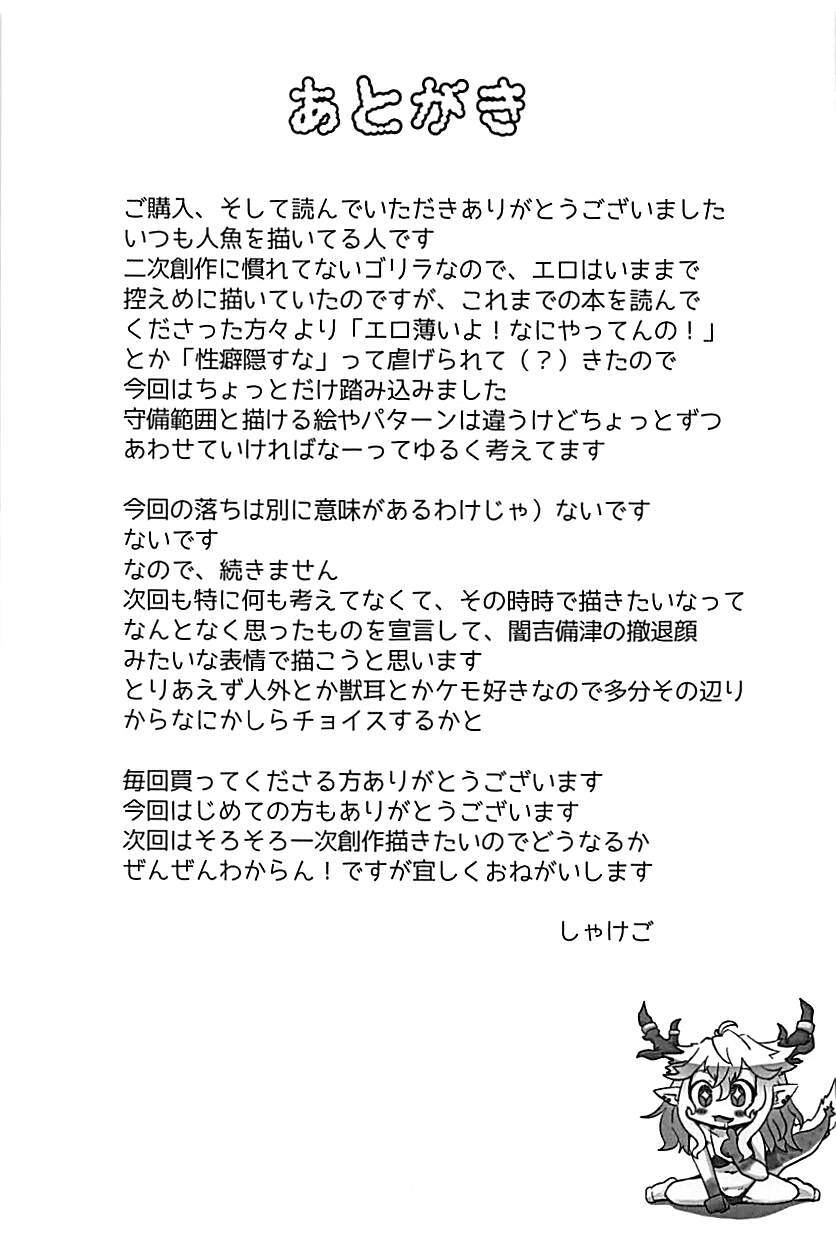 あとがき
ご購入、そして読んでいただきありがとうございました
いつも人魚を描いてる人です
二次創作に慣れてないゴリラなので、エロはいままで
控えめに描いていたのですが、これまでの本を読んで
くださった方々より「エロ薄いよ！なにやってんの！」
とか「性癖隠すな」って虐げられて（？）きたので
今回はちょっとだけ踏み込みました
守備範囲と描ける絵やパターンは違うけどちょっとずつ
あわせていければなーってゆるく考えてます
今回の落ちは別に意味があるわけじゃ）ないです
ないです
なので、続きません
次回も特に何も考えてなくて、その時時で描きたいなって
なんとなく思ったものを宣言して、闇吉備津の撤退顔
みたいな表情で描こうと思います
とりあえず人外とか獣耳とかケモ好きなので多分その辺り
からなにかしらチョイスするかと
毎回買ってくださる方ありがとうございます
今回はじめての方もありがとうございます
次回はそろそろ一次創作描きたいのでどうなるか
ぜんぜんわからん！ですが宜しくおねがいします
しゃけご